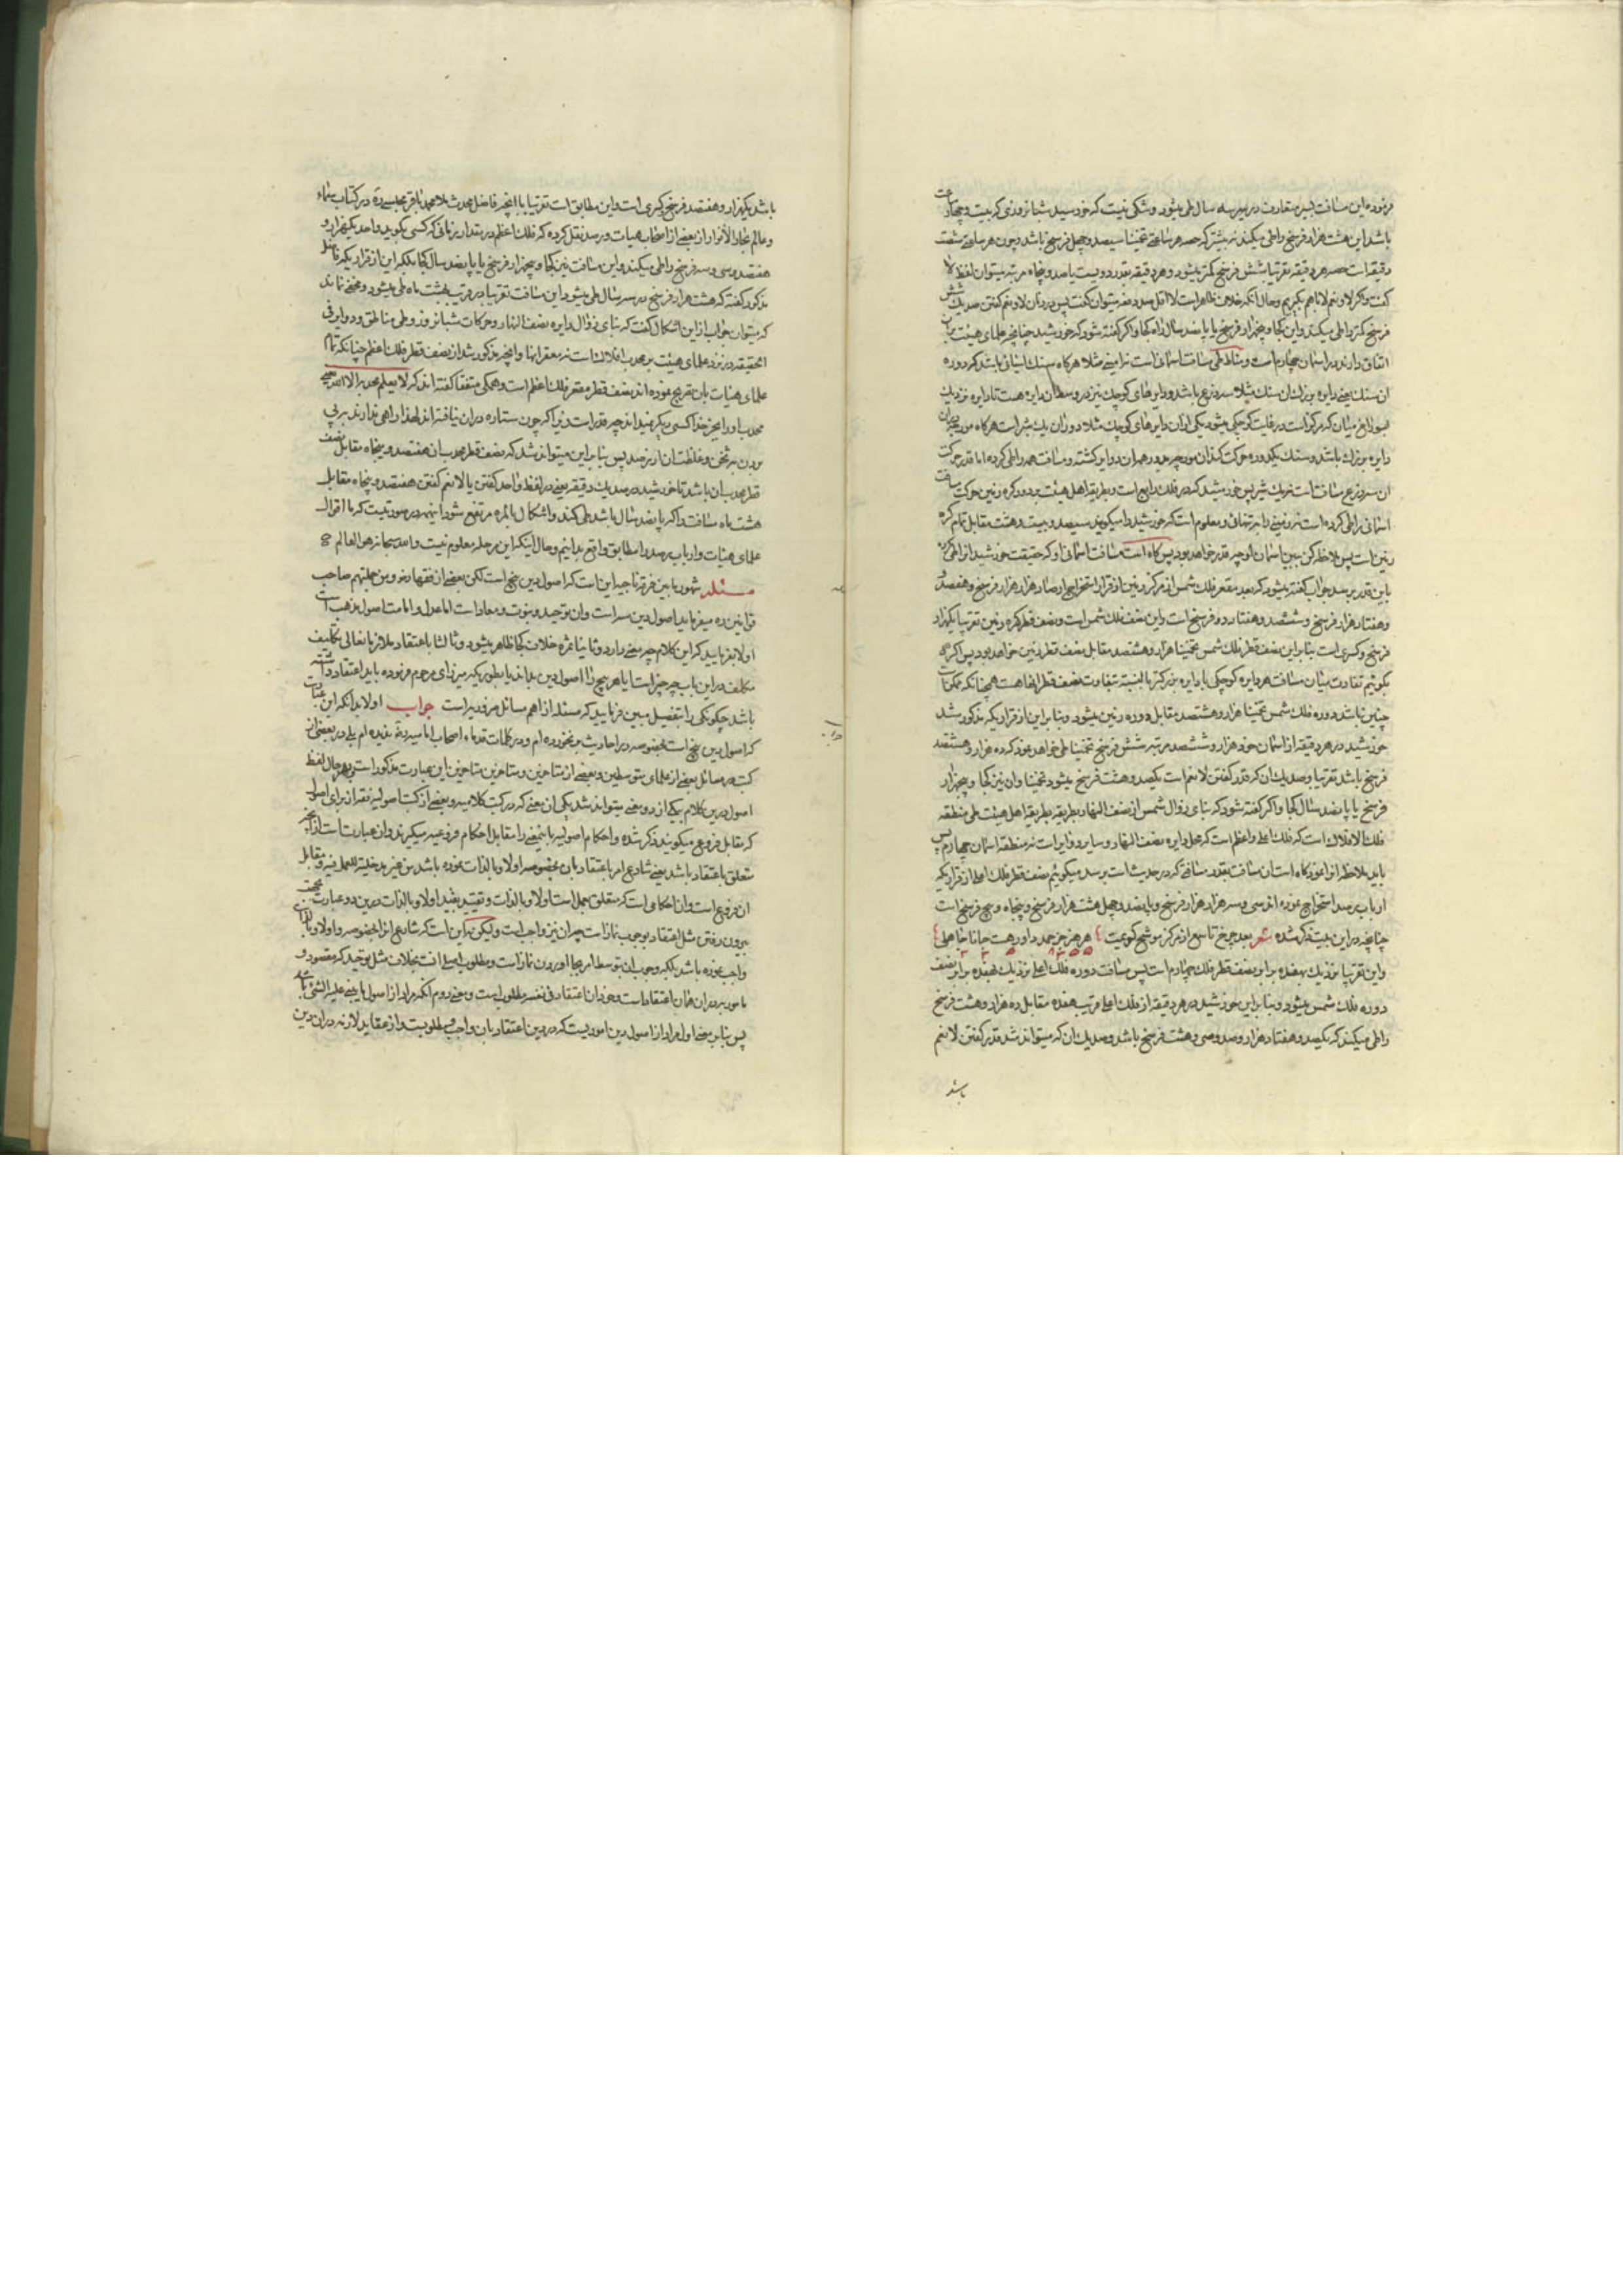 فرموده این مسافت بسیر متعارف در سه سال طی میشود و شکی نیست که خورشید شبانه روزی که بیست و چهار ساعت
باشد این هشت هزار فرسخ را طی میکند نه بیشتر که حصه هر ساعتی تخمینا سیصد و چهل فرسخ باشد و چون هر ساعتی شصت
دقیقه است حصه هر دقیقه تقریبا شش فرسخ کمتر میشود و هر دقیقه بقدر دویست یا صد و پنجاه مرتبه میتوان لفظ لا
گفت و اگر لا و نعم لا با هم بگیریم و حال آنکه خلاف ظاهر است لا اقل صد دفعه میتوان گفت پس در زمان لا و نعم گفتن صد یک شش
فرسخ کمتر را طی میکند و این کجا و پنجهزار فرسخ یا پانصد سال راه کجا و اگر گفته شود که خورشید چنانچه علمای هیئت بر آن
اتفاق دارند در آسمان چهارم است و مناط طی مسافت آسمانی است نه زمینی مثلا هر گاه سنگ آسیائی باشد که دوره
آن سنگ یعنی دایره بزرگ آن سنگ مثلا سه زرع باشد و دایرهای کوچک نیز در وسط آن دایره هست تا دایره نزدیک
سوراخ میان که مرکز است در غایت کوچکی میشود یکی از آن دایرهای کوچک مثلا دوران یک شبر است هر گاه مورچه در آن
دایره بزرگ باشد و سنگ یکدوره حرکت کند آن مورچه خود در همان دوایر گشته و مسافت همه را طی کرده اما قدر حرکت
آن سه زرع مسافت است نه یک شبر پس خورشید که در فلک رابع است و بطریقه اهل هیئت بر دور کره زمین حرکت مسافت
آسمانی را طی کرده است نه زمینی را به تنهائی و معلوم است که خورشید را میگویند سیصد و بیست و هشت مقابل تمام کره
زمین است پس ملاحظه کن ببین آسمان او چه قدر خواهد بود پس گاه است مسافت آسمانی او که حقیقت خورشید آنرا طی کرده
باین قدر برسد جواب گفته میشود که بعد مقعر فلک شمس از مرکز زمین از قرار استخراج ارصاد هزار هزار فرسخ و هفتصد
و هفتاد هزار فرسخ و ششصد و هفتاد و دو فرسخ است و این نصف فلک شمس است و نصف قطر کره زمین تقریبا یکهزار
فرسخ و کسری است بنا بر این نصف قطر فلک شمس تخمینا هزار و هشتصد مقابل نصف قطر زمین خواهد بود پس اگر
بگوئیم تفاوت میان مسافت هر دایره کوچکی با دایره بزرگتر بالنسبه تفاوت نصف قطر آنهاست همچنانکه
چنین باشد دوره فلک شمس تخمینا هزار و هشتصد مقابل دوره زمین میشود و بنا بر این از قراریکه مذکور شد
خورشید در هر دقیقه از آسمان خود هزار و ششصد مرتبه شش فرسخ تخمینا طی خواهد نمود که ده هزار و هشتصد
فرسخ باشد تقریبا و صد یک آن که قدر گفتن لا نعم است یکصد و هشت فرسخ میشود تخمینا و آن نیز کجا و پنجهزار
فرسخ یا پانصد سال کجا و اگر گفته شود که بنای زوال شمس از نصف النهار بطریقه بطریقه اهل هیئت طی منطقه
فلک الافلاک است که فلک اعلی و اعظم است که محل دایره نصف النهار و سایر دوایر است نه منطقه آسمان چهارم پس
باید ملاحظه آنرا نمود گاه است آن مسافت بقدر مسافتی که در حدیث است برسد میگوئیم نصف قطر فلک اعلی از قراریکه
ارباب رصد استخراج نموده اند سی و سه هزار هزار فرسخ و پانصد و چهل هشت هزار فرسخ و پنجاه و پنج فرسخ است
چنانچه در این بیت ذکر شده شعر بعد چرخ تاسع از مرکز موشح گوعیت
و این تقریبا نزدیک بهفده برابر نصف قطر فلک چهارم است پس مسافت دوره فلک اعلی نزدیک بهفده برابر نصف
دوره فلک شمس میشود و بنا بر این خورشید در هر دقیقه از فلک اعلی قریب هفده مقابل ده هزار و هشت فرسخ
را طی میکند که یکصد و هفتاد هزار و صد و سی و هشت فرسخ باشد و صد یک آن که میتواند شد قدر گفتن لا نعم
باشد
باشد یکهزار و هفتصد فرسخ و کسری است و این مطابق است تقریبا با آنچه فاضل محدث ملا محمد باقر مجلسی ره در کتاب سماء
و عالم بحار الأنوار از بعضی از اصحاب هیات و رصد نقل کرده که فلک اعظم در مقدار زمانی که کسی بگوید واحد یکهزار و
هفتصد و سی و سه فرسخ را طی میکند و این مسافت نیز کجا و پنجهزار فرسخ یا پانصد سال کجا بلکه این از قراریکه قائل
مذکور گفته که هشت هزار فرسخ در سه سال طی میشود این مسافت تقریبا در قریب بهشت ماه طی میشود و مخفی نماند
که میتوان جواب از این اشکال گفت که بنای زوال دایره نصف النهار و حرکات شبانه روز و طی مناطق و دوایر فی
الحقیقه در نزد علمای هیئت بر محدب افلاک است نه مقعر آنها و آنچه مذکور شد از نصف قطر فلک اعظم چنانکه تمام
علمای هیئات باین تصریح نموده اند نصف قطر مقعر فلک اعظم است و همگی متفقا گفته اند که لا یعلم محدبه الا الله یعنی
محدب او را بجز خدا کسی دیگر نمیداند چه قدر است زیرا که چون ستاره در آن نیافته اند لهذا راهی ندارند بر پی
بردن بر ثخن و غلظت آن از رصد پس بنا بر این میتواند شد که نصف قطر محدب آن هفتصد و پنجاه مقابل نصف
قطر مقعر آن باشد تا خورشید در صد یک دقیقه یعنی در لفظ واحد گفتن یا لا نعم گفتن هفتصد و پنجاه مقابل
هشت ماه مسافت را که پانصد سال باشد طی کند و اشکال بالمره مرتفع شود اینهمه در صورتیست که ما اقوال
علمای هیئات و ارباب رصد را مطابق واقع بدانیم و حال اینکه این مرحله معلوم نیست والله سبحانه هو العالم
مسئله مشهور ما بین فرقه ناجیه این است که اصول دین پنج است لکن بعضی از فقها رضو و من جملتهم صاحب
قوانین ره میفرماید اصول دین سه است و آن توحید و نبوت و معاد است اما عدل و امامت اصول مذهب است
اولا بفرمایید که این کلام چه معنی دارد و ثانیا ثمره خلاف کجا ظاهر میشود و ثالثا باعتقاد ملازمان عالی تکلیف
مکلف در این باب چه چیز است آیا هر پنج را اصول دین بداند یا بطوریکه میرزای مرحوم فرموده باید اعتقاد داشته
باشد چگونگی را بتفصیل مبین فرمایید که مسئله از اهم مسائل ضروریه است جواب اولا بدانکه این عبارت
که اصول دین پنج است بخصوصه در احادیث بر نخورده ام و در کلمات قدماء اصحاب امامیه ره ندیده ام بلی در بعضی از
کتب و رسائل بعضی از علمای متوسطین و بعضی از متاخرین و متاخرین متاخرین این عبارت مذکور است و بهر حال لفظ
اصول دین در کلام یکی از دو معنی میتواند شد یکی آن معنی که در کتب کلامیه و بعضی از کتب اصولیه فقه از برای اصول
که مقابل فروع میگویند ذکر شده و احکام اصولیه باینمعنی را مقابل احکام فروعیه میگیرند و آن عبارت است از آنچه
متعلق باعتقاد باشد یعنی شارع امر باعتقاد بآن بخصوصه اولا و بالذات نموده باشد من غیر مدخلیة للعمل فیه و مقابل
آن فروع است و آن احکامی است که متعلق بعمل است اولا و بالذات و تقیید بقید اولا و بالذات در این دو عبارت بجهت
بیرون رفتن مثل اعتقاد بوجوب نماز است چه آن نیز واجب است ولیکن نه این است که شارع آنرا بخصوصه و اولا و بالذات
واجب نموده باشد بلکه وجوب آن بتوسط امر بجا آوردن نماز است و مطلوب اصلی آنست بخلاف مثل توحید که مقصود و
مامور به در آن همان اعتقاد است و خود آن اعتقاد فی نفسه مطلوب است و معنی دوم آنکه مراد از اصول ما یبنی علیه الشئ باشد
پس بنا بر معنی اول مراد از اصول دین اموریست که در دین اعتقاد بآن واجب و مطلوبست و از عقاید لازمه در آن دین